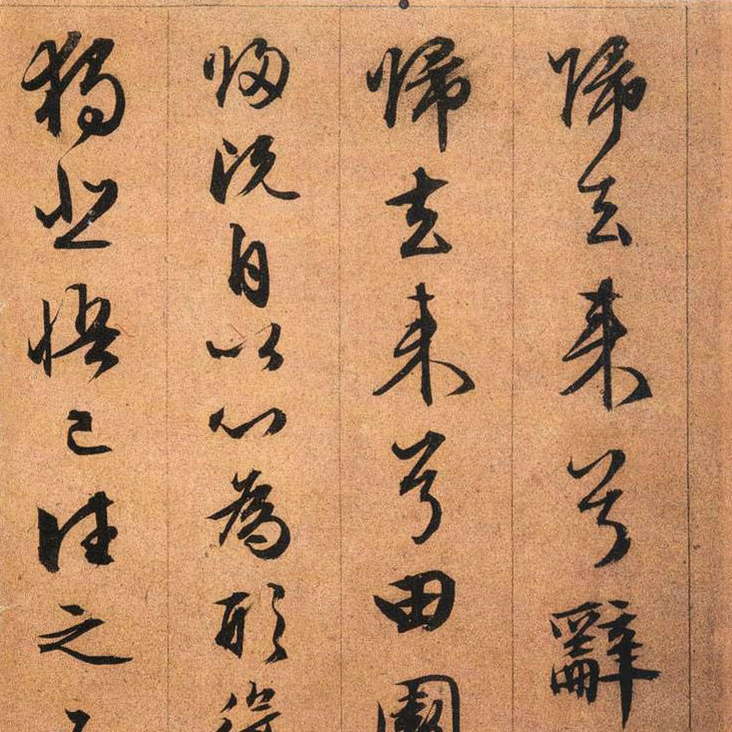 歸去来兮辭
歸去来兮田園
歸既自以心為形
獨悲悟已往之